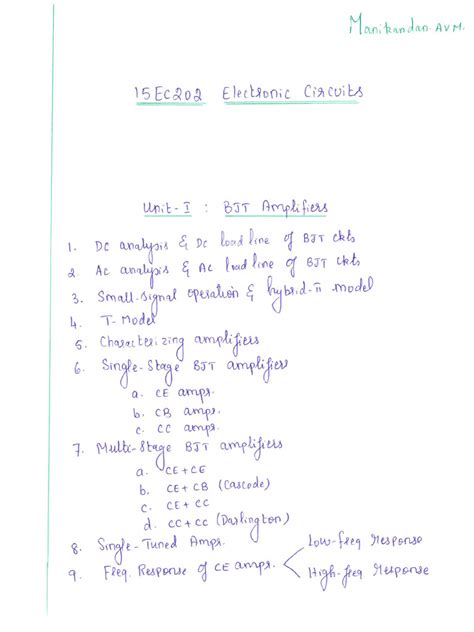 Manikandan. AVM.
15EC202 Electronic Circuits
Unit-I : BJT Amplifiers
1. DC analysis & DC load line of BJT ckts
2 AC analysis & AC load line of BJT ckts
3. Small-Signal operation & hybrid-π model
4. T-Model
5. Characterizing amplifiers
6. Single-Stage BJT amplifiers
a. CE amps.
b. CB amps.
c. CC amps.
7. Multi-Stage BJT amplifiers
a. CE+CE
b. CE+CB (Cascode)
c. CE+CC
d. CC+CC (Darlington)
8. Single-Tuned Amps.
9. Freq. Response of CE amps.
Low-freq response
High-freq response